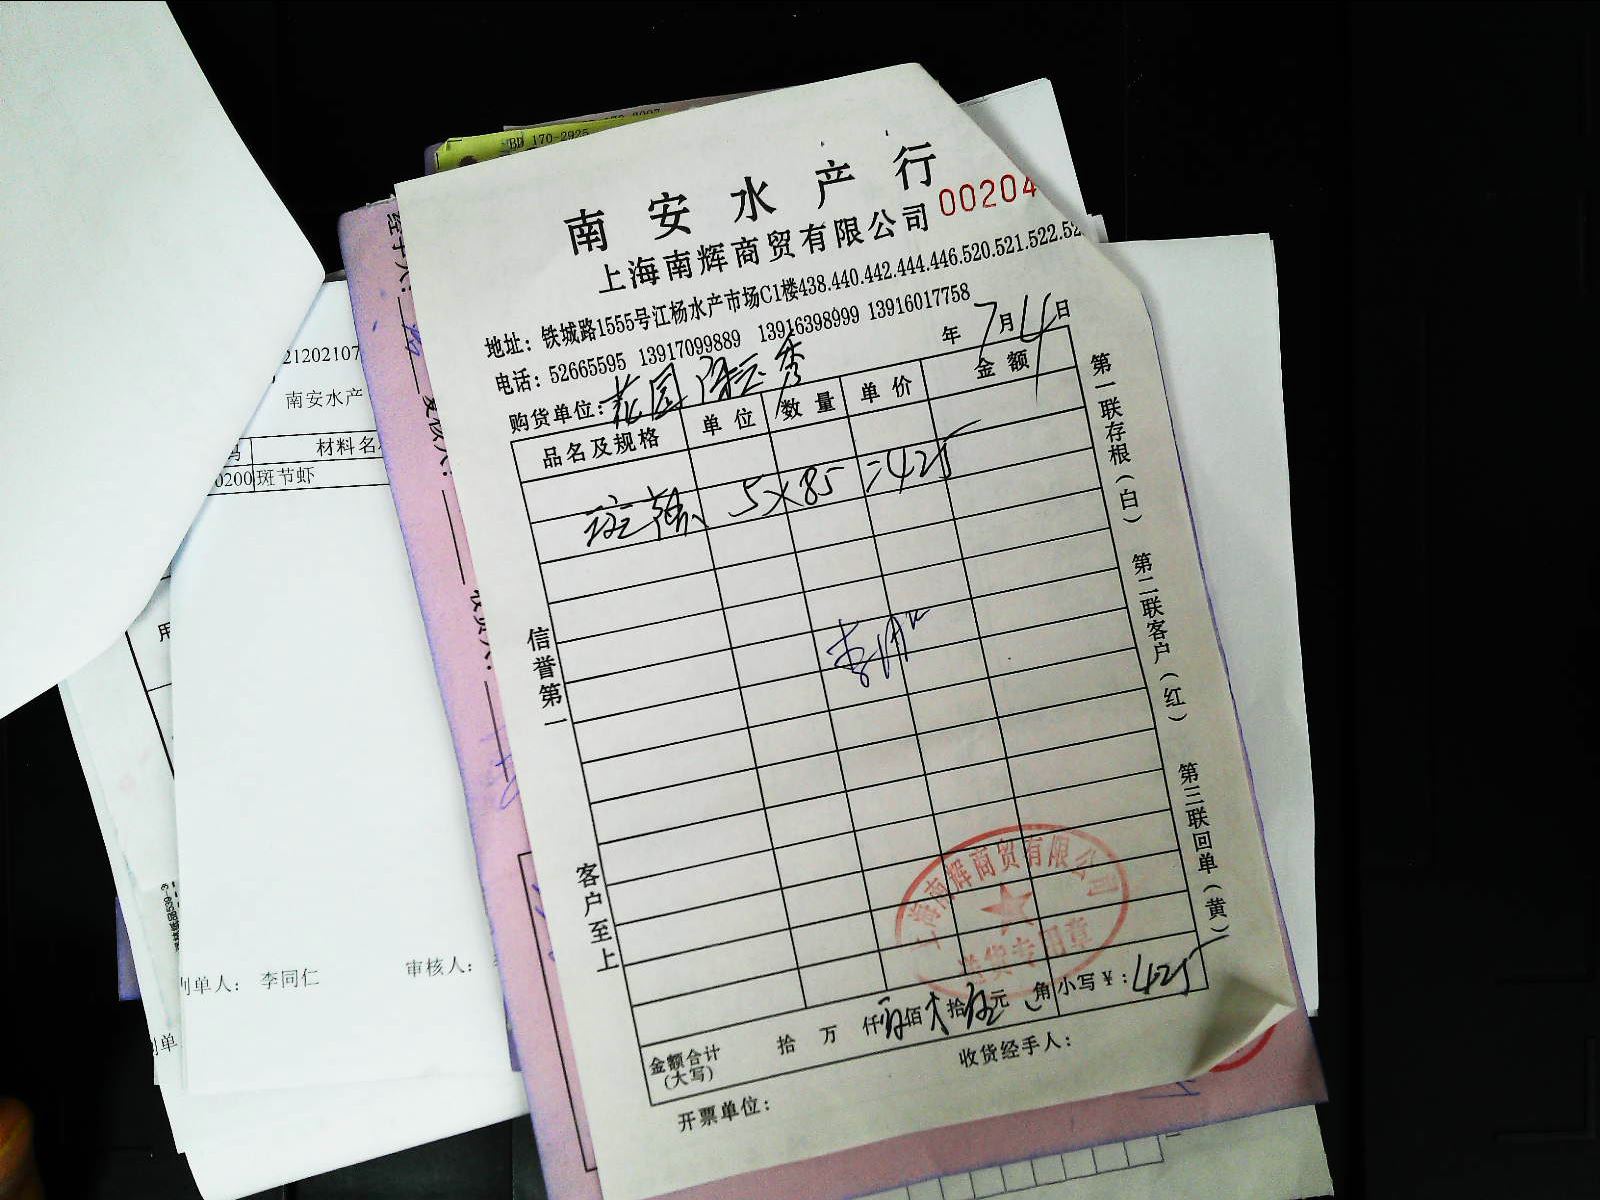 BD 170-2925
南安水产行
上海南辉商贸有限公司 00204
地址：铁城路1555号江杨水产市场C1楼438.440.442.444.446.520.521.522.52
电话：52665595 13917099889 13916398999 13916017758
购货单位：花园 年7月4日
品名及规格 单位 数量 单价 金额
斑 5×85=425
信誉第一 客户至上
第一联存根（白） 第二联客户（红） 第三联回单（黄）
上海南辉商贸有限公司
金额合计（大写） 拾 万 仟 佰 拾 元 角 小写￥：425
开票单位： 收货经手人：
21202107
南安水产
材料名
0200 斑节虾
制单人： 李同仁 审核人：
制单
经手人：
复核人：
收货人：
用